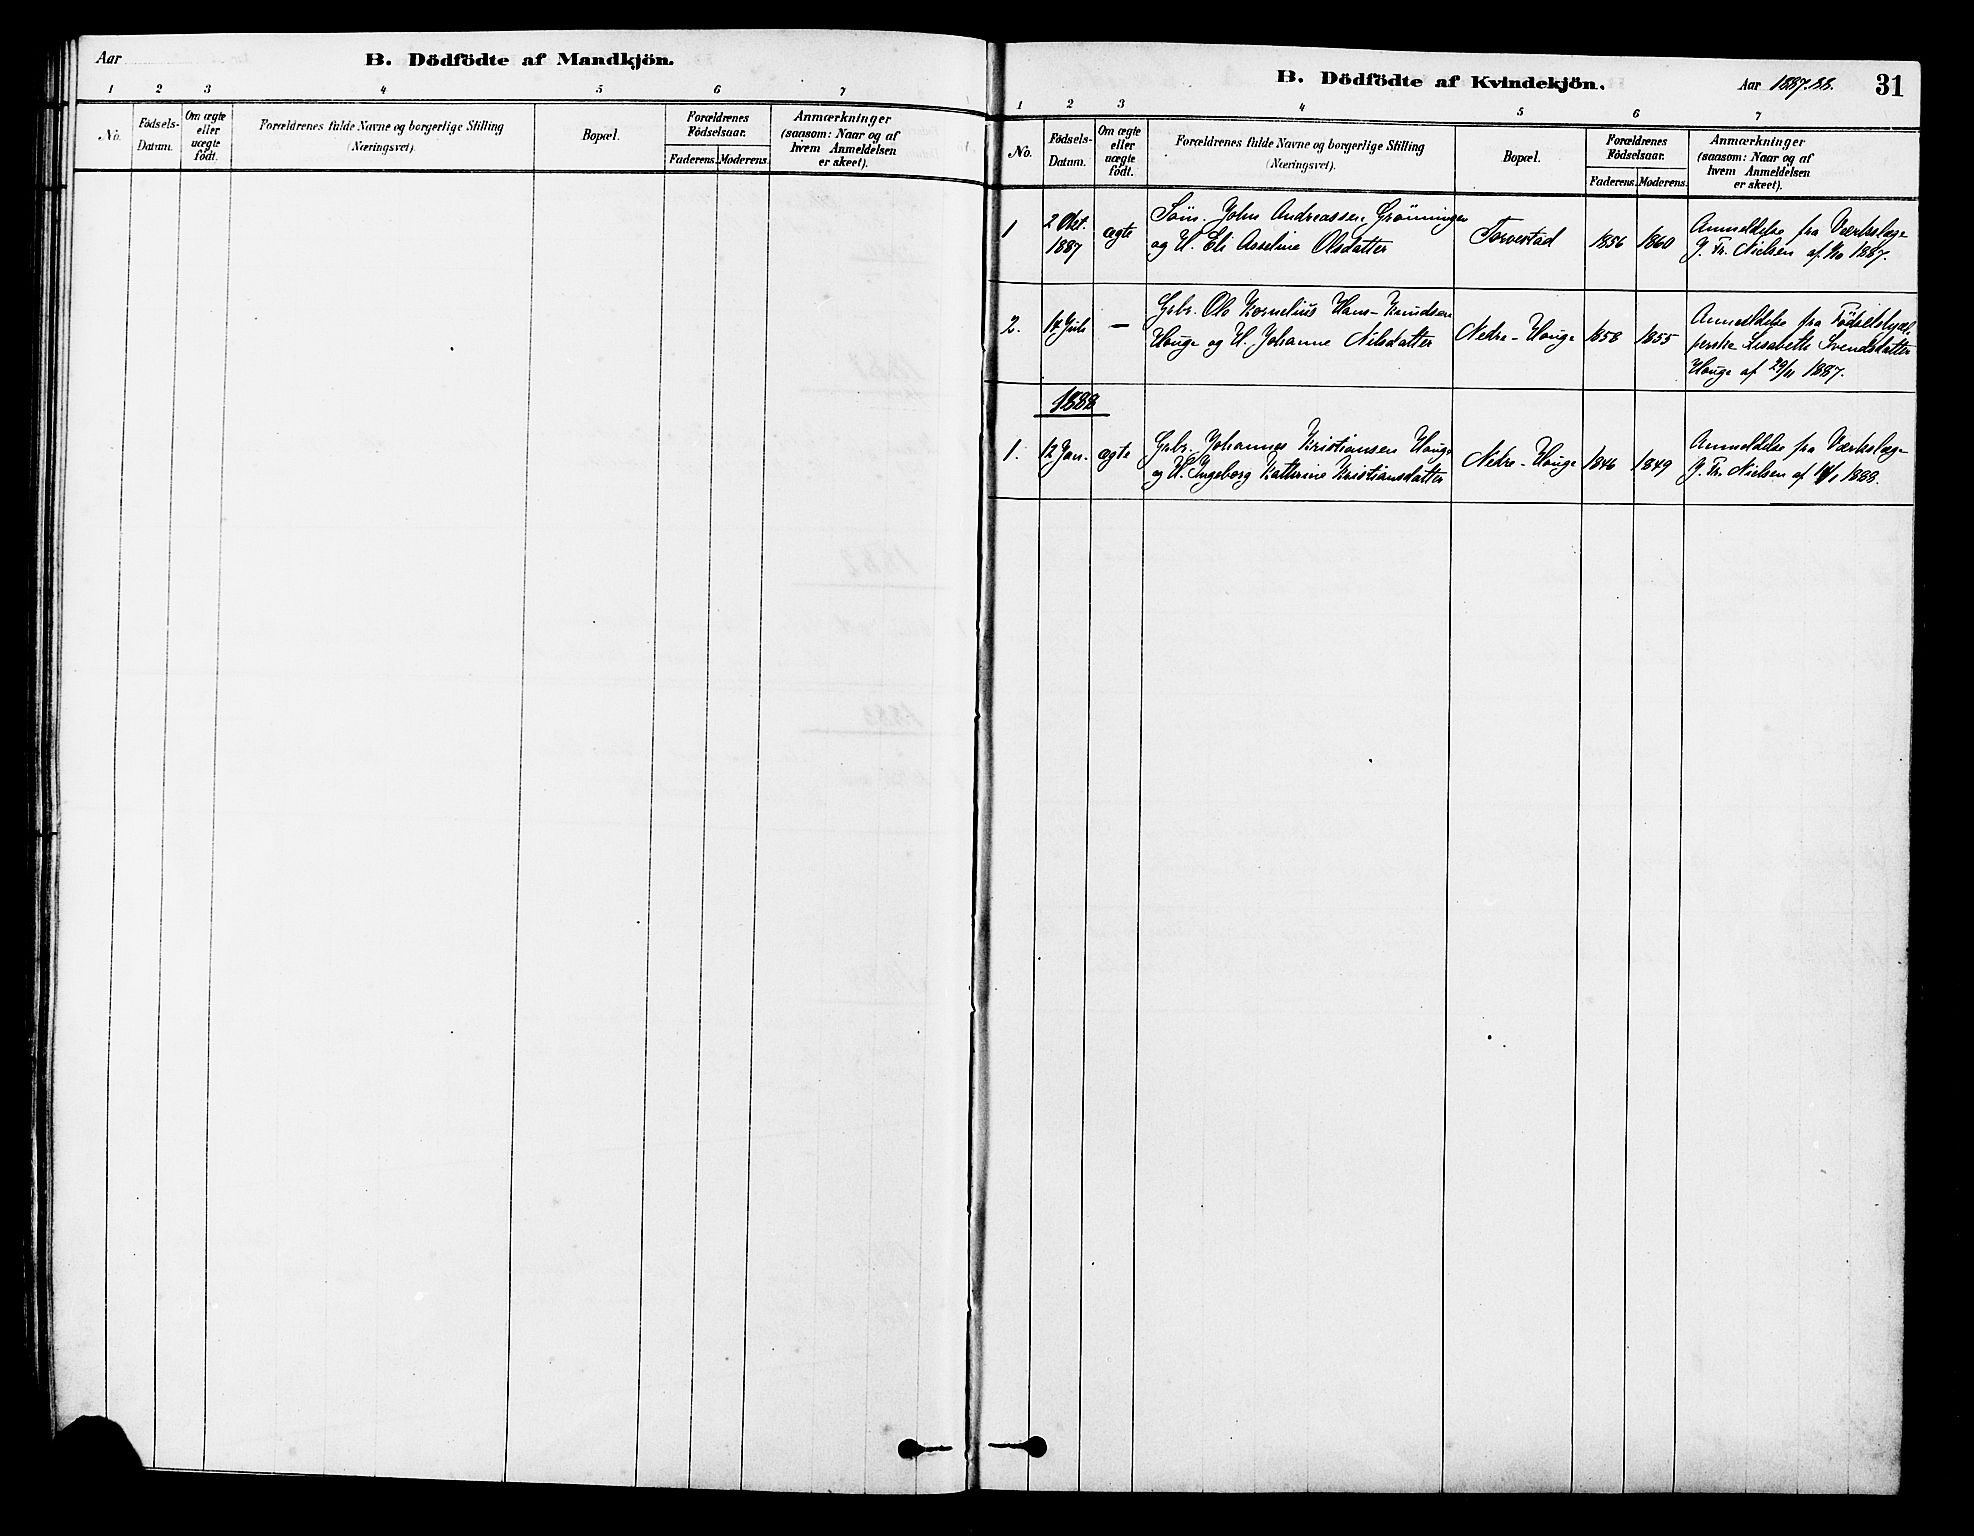 Aar
B. Dödfödte af Mandkjön.
1 2 3 4 5 6 7
No.
Fødsels-
Datum.
Om ægte
eller
uægte
født.
Forældrenes fulde Navne og borgerlige Stilling
(Næringsvei).
Bopæl.
Forældrenes
Fødselsaar.
Faderens. Moderens.
Anmærkninger
(saasom: Naar og af
hvem Anmeldelsen
er skeet).
B. Dödfödte af Kvindekjön.
Aar 1887.88.
31
1 2 3 4 5 6 7
No.
Fødsels-
Datum.
Om ægte
eller
uægte
født.
Forældrenes fulde Navne og borgerlige Stilling
(Næringsvei).
Bopæl.
Forældrenes
Fødselsaar.
Faderens. Moderens.
Anmærkninger
(saasom: Naar og af
hvem Anmeldelsen
er skeet).
1
2 Okt.
1887
ægte
Søm. John Andreassen Grönningen
og H. Eli Asseline Olsdatter
Torvestad
1856
1860
Anmeldelse fra Værkslæge
J. Fr. Nielsen af 1887.
2.
17 Juli
—
Grbr. Ole Kornelius Hans-Knudsen
Houge og H. Johanne Nilsdatter
Nedre-Houge
1858
1855
Anmeldelse fra Fødselshjæl-
perske Lisabeth Svendsdatter
Houge af 29/11 1887.
1888
1.
12 Jan.
ægte
Grbr. Johannes Kristiansen Houge
og H. Ingeborg Kathrine Kristiansdatter
Nedre-Houge
1846
1849
Anmeldelse fra Værkslæge
J. Fr. Nielsen af 14/1 1888.